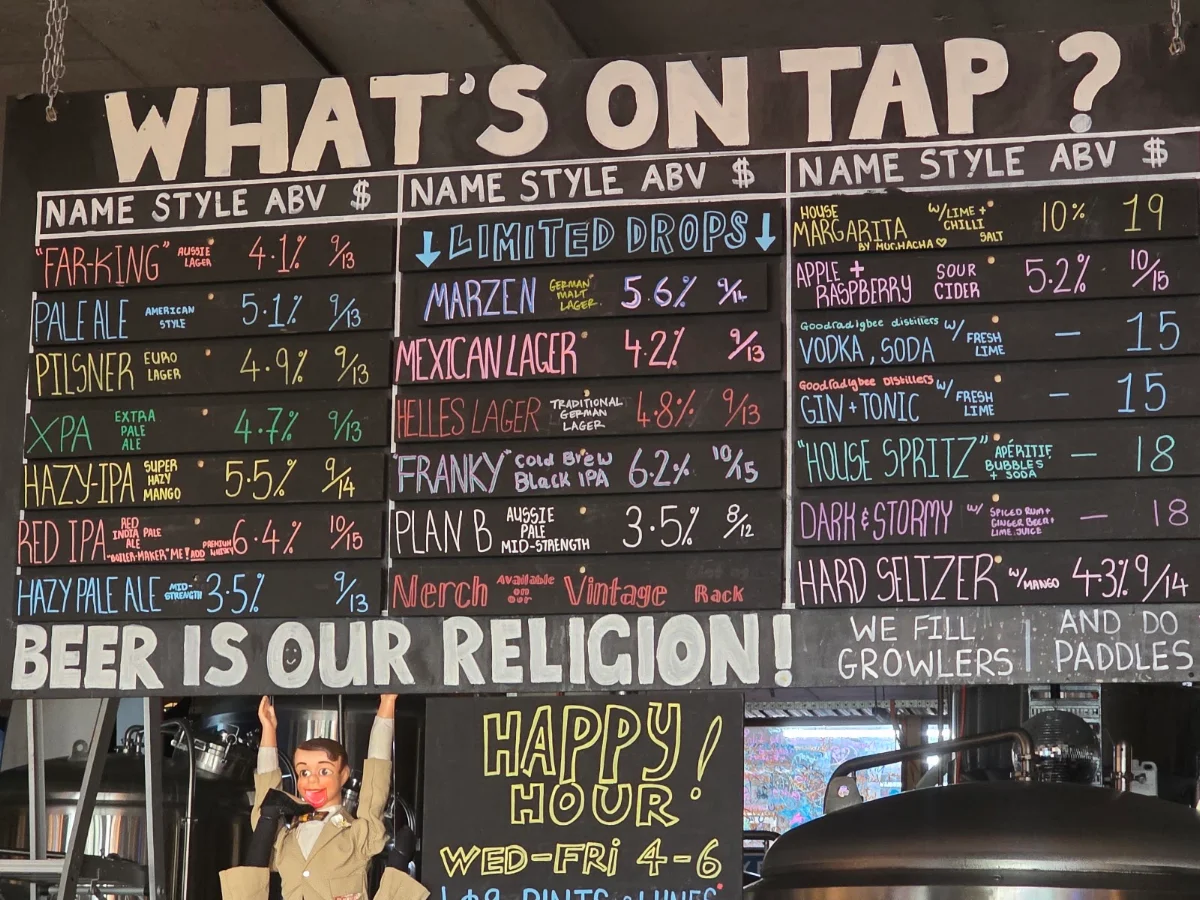 WHAT'S ON TAP ?
NAME STYLE ABV $
"FAR-KING" AUSSIE LAGER 4.1% 9/13
PALE ALE AMERICAN STYLE 5.1% 9/13
PILSNER EURO LAGER 4.9% 9/13
XPA EXTRA PALE ALE 4.7% 9/13
HAZY-IPA SUPER HAZY MANGO 5.5% 9/14
RED IPA RED INDIA PALE ALE "BOILER-MAKER" ME! ADD PREMIUM WHISKY 6.4% 10/15
HAZY PALE ALE MID-STRENGTH 3.5% 9/13
NAME STYLE ABV $
↓ LIMITED DROPS ↓
MARZEN GERMAN MALT LAGER 5.6% 9/14
MEXICAN LAGER 4.2% 9/13
HELLES LAGER TRADITIONAL GERMAN LAGER 4.8% 9/13
"FRANKY" Cold Brew Black IPA 6.2% 10/15
PLAN B AUSSIE PALE MID-STRENGTH 3.5% 8/12
Merch Available on our Vintage Rack
NAME STYLE ABV $
HOUSE MARGARITA BY MUCHACHA ♡ W/LIME + CHILLI SALT 10% 19
APPLE + RASPBERRY SOUR CIDER 5.2% 10/15
Goodradigbee distillers VODKA, SODA W/ FRESH LIME – 15
Goodradigbee Distillers GIN + TONIC W/ FRESH LIME – 15
"HOUSE SPRITZ" APÉRITIF BUBBLES + SODA – 18
DARK & STORMY W/ SPICED RUM + GINGER BEER + LIME JUICE – 18
HARD SELTZER W/MANGO 4.3% 9/14
BEER IS OUR RELIGION!
WE FILL GROWLERS | AND DO PADDLES
HAPPY HOUR!
WED-FRi 4-6